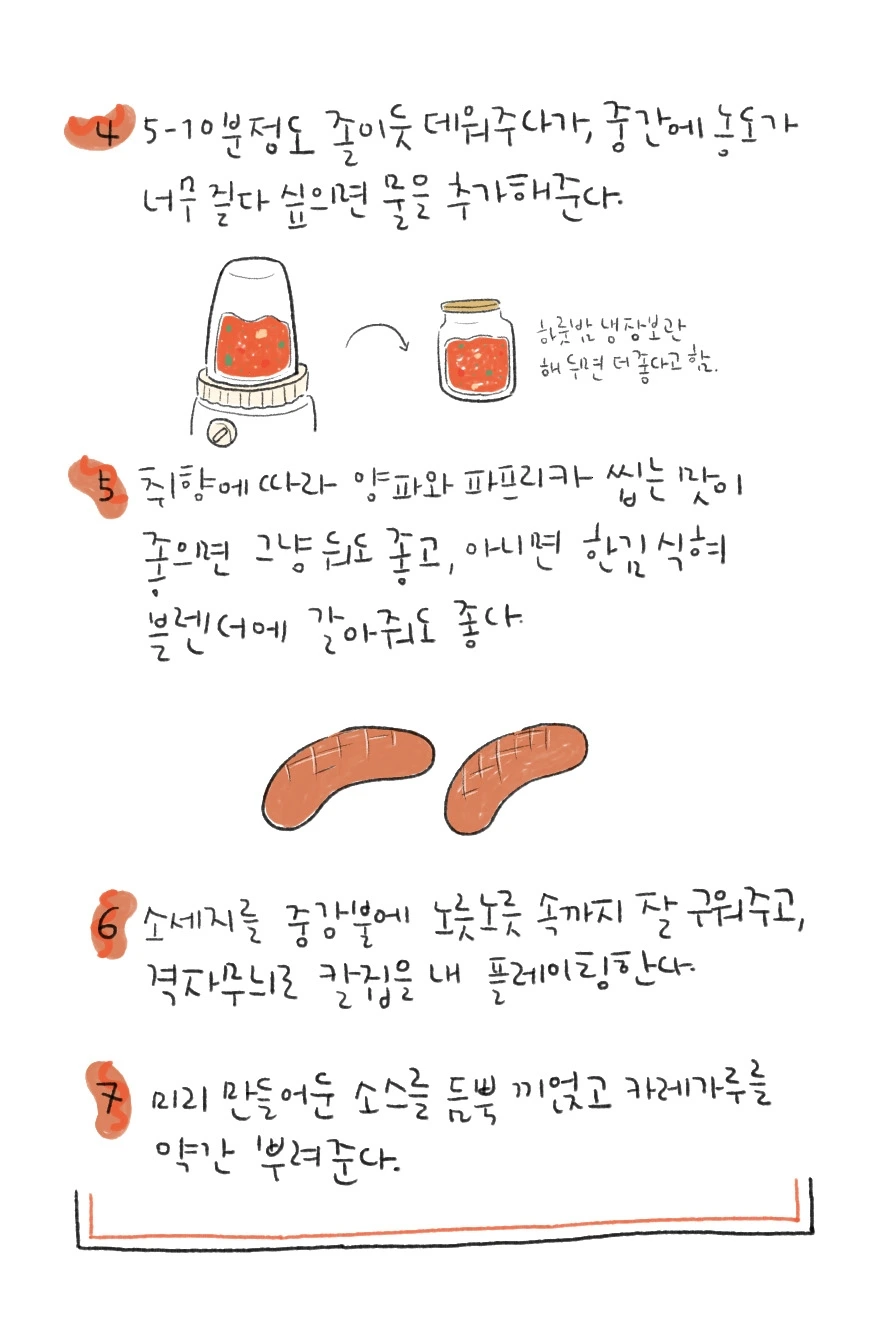 4 5-10분정도 졸이듯 데워주다가, 중간에 농도가
너무 질다 싶으면 물을 추가해준다.
하룻밤 냉장보관
해두면 더 좋다고 함.
5 취향에 따라 양파와 파프리카 씹는 맛이
좋으면 그냥 둬도 좋고, 아니면 한김 식혀
블렌더에 갈아줘도 좋다.
6 소세지를 중강불에 노릇노릇 속까지 잘 구워주고,
격자무늬로 칼집을 내 플레이팅한다.
7 미리 만들어둔 소스를 듬뿍 끼얹고 카레가루를
약간 뿌려준다.